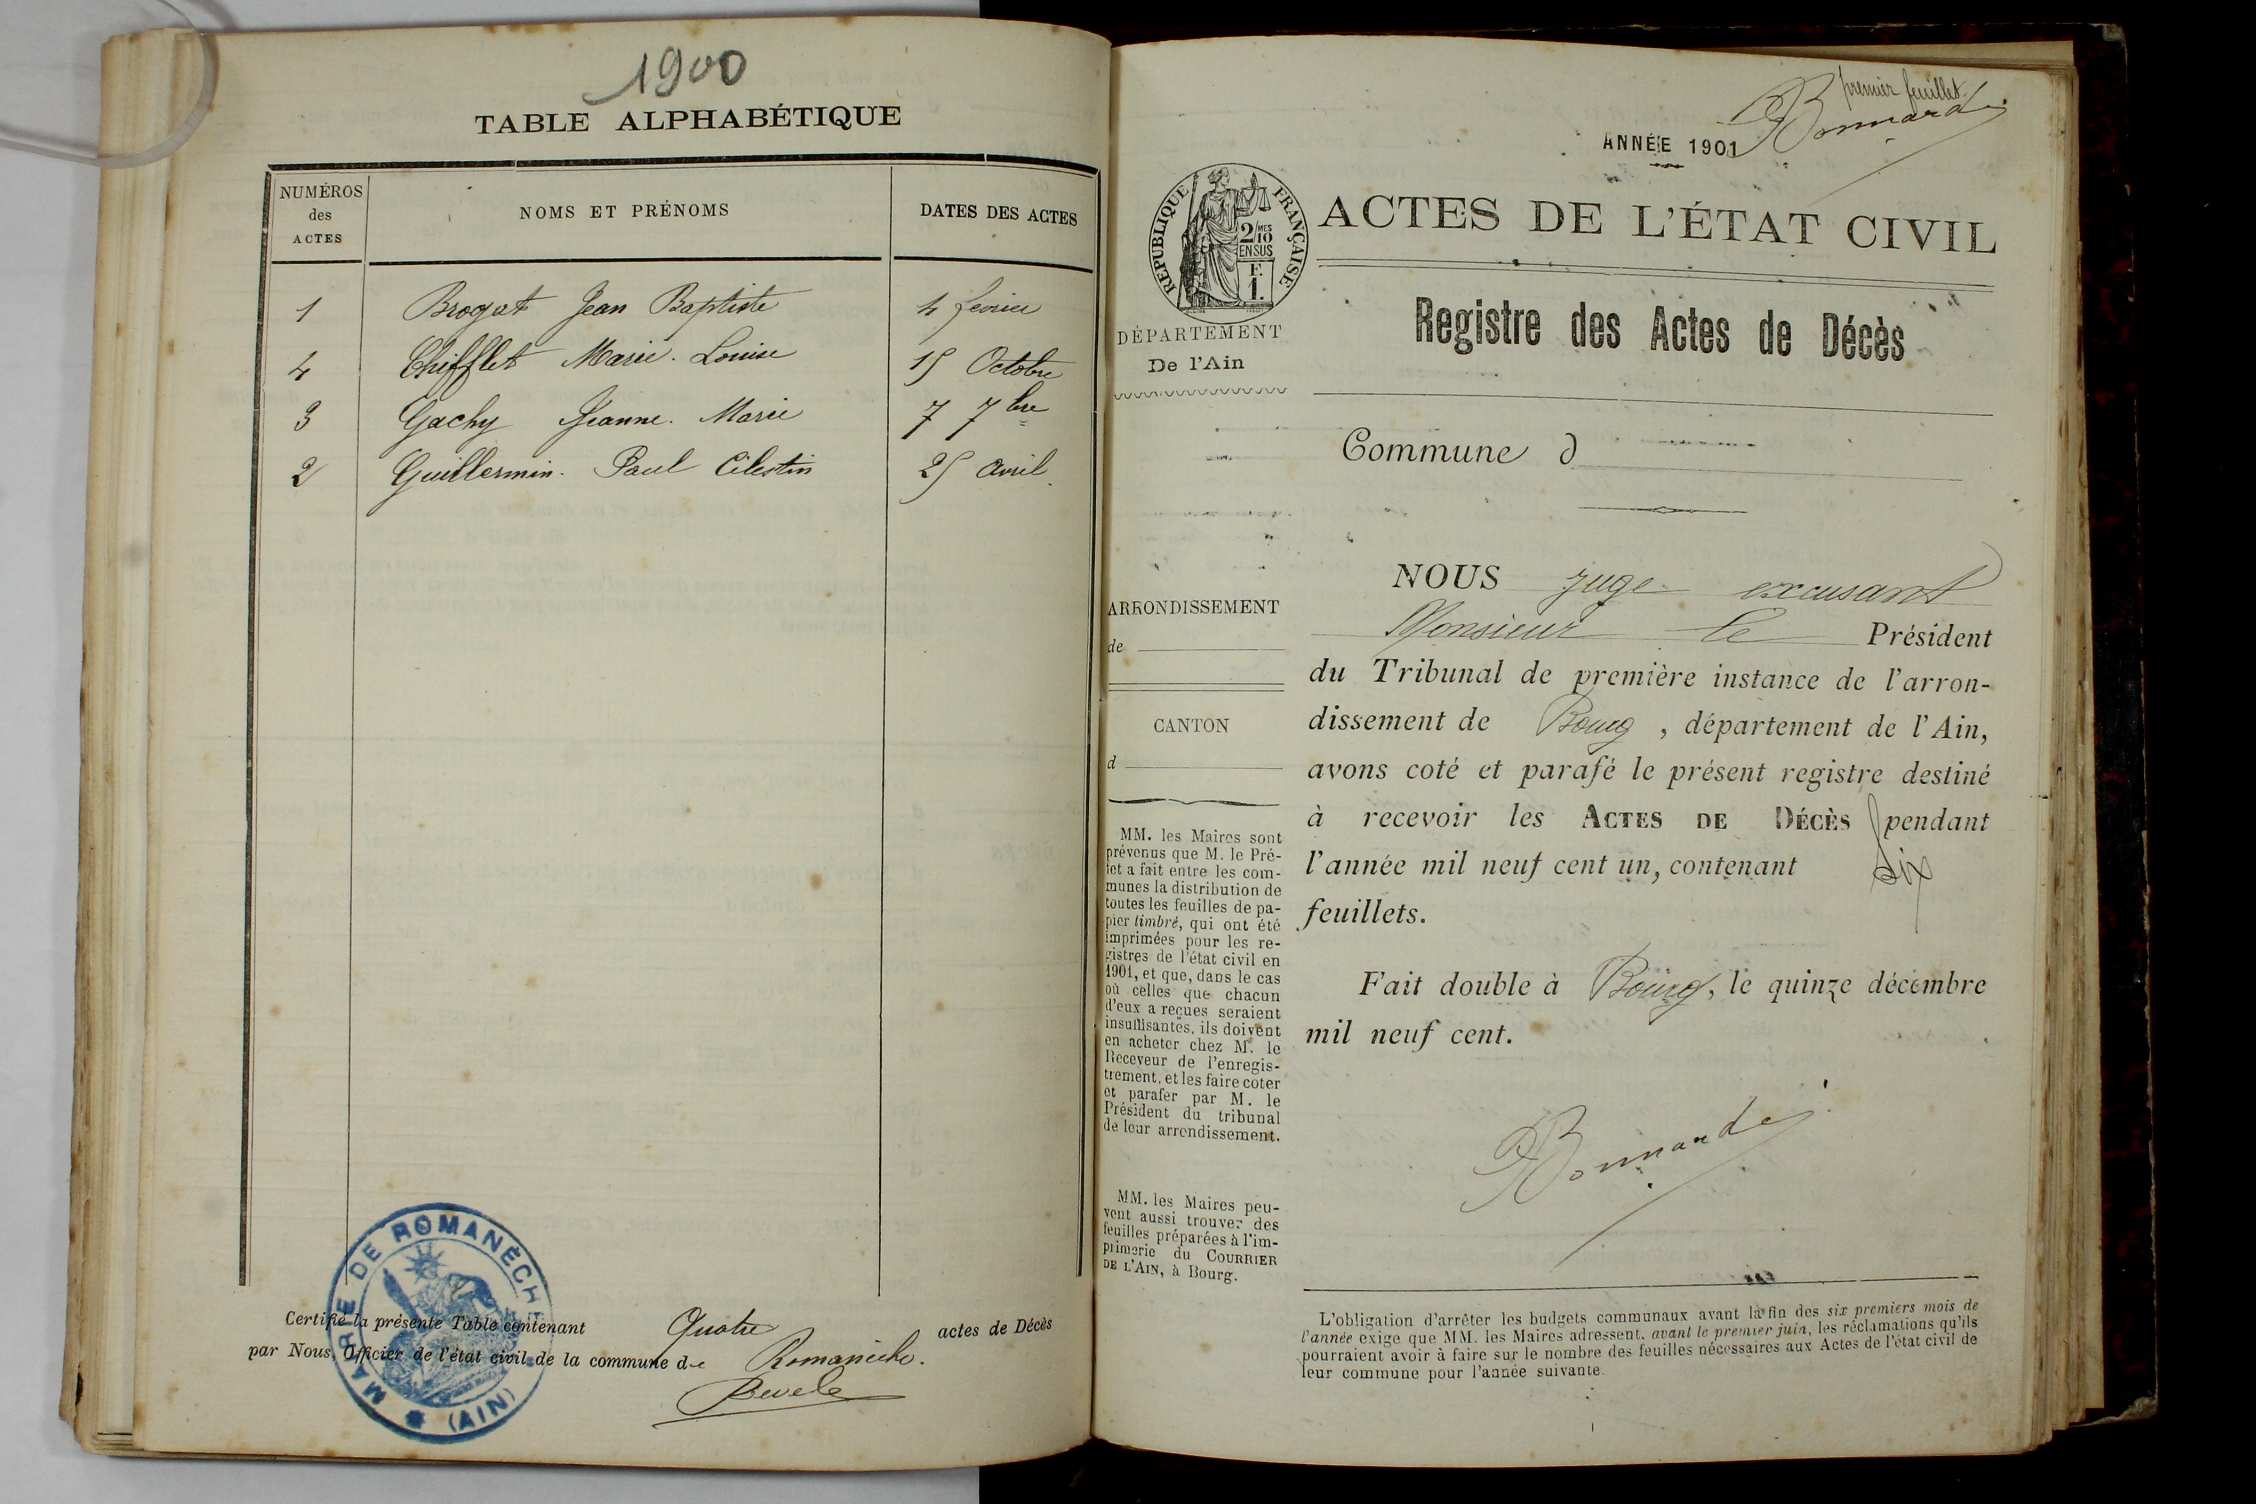 1900
TABLE ALPHABÉTIQUE
NUMÉROS des ACTES
NOMS ET PRÉNOMS
DATES DES ACTES
1 Brogat Jean Baptiste 4 février
4 Chifflet Marie. Louise 15 Octobre
3 Gachy Jeanne. Marie 7 7bre
2 Guillermin. Paul Célestin 25 avril.
MAIRIE DE ROMANÉCHE
(AIN)
Certifié la présente Table contenant Quatre actes de Décès
par Nous, Officier de l'état civil de la commune de Romanèche.
premier feuillet.
Bonnard
ANNÉE 1901
RÉPUBLIQUE FRANÇAISE
2/10 MES
EN SUS
F.
1.
ACTES DE L'ÉTAT CIVIL
DÉPARTEMENT
De l'Ain
Registre des Actes de Décès
Commune d
ARRONDISSEMENT
de
CANTON
d
MM. les Maires sont
prévenus que M. le Pré-
fet a fait entre les com-
munes la distribution de
toutes les feuilles de pa-
pier timbré, qui ont été
imprimées pour les re-
gistres de l'état civil en
1901, et que, dans le cas
où celles que chacun
d'eux a reçues seraient
insuffisantes, ils doivent
en acheter chez M. le
Receveur de l'enregis-
trement, et les faire coter
et parafer par M. le
Président du tribunal
de leur arrondissement.
MM. les Maires peu-
vent aussi trouver des
feuilles préparées à l'im-
primerie du COURRIER
DE L'AIN, à Bourg.
NOUS juge excusant
Monsieur le Président
du Tribunal de première instance de l'arron-
dissement de Bourg, département de l'Ain,
avons coté et parafé le présent registre destiné
à recevoir les ACTES DE DÉCÈS pendant
l'année mil neuf cent un, contenant six
feuillets.
Fait double à Bourg, le quinze décembre
mil neuf cent.
Bonnard
L'obligation d'arrêter les budgets communaux avant la fin des six premiers mois de
l'année exige que MM. les Maires adressent, avant le premier juin, les réclamations qu'ils
pourraient avoir à faire sur le nombre des feuilles nécessaires aux Actes de l'état civil de
leur commune pour l'année suivante.